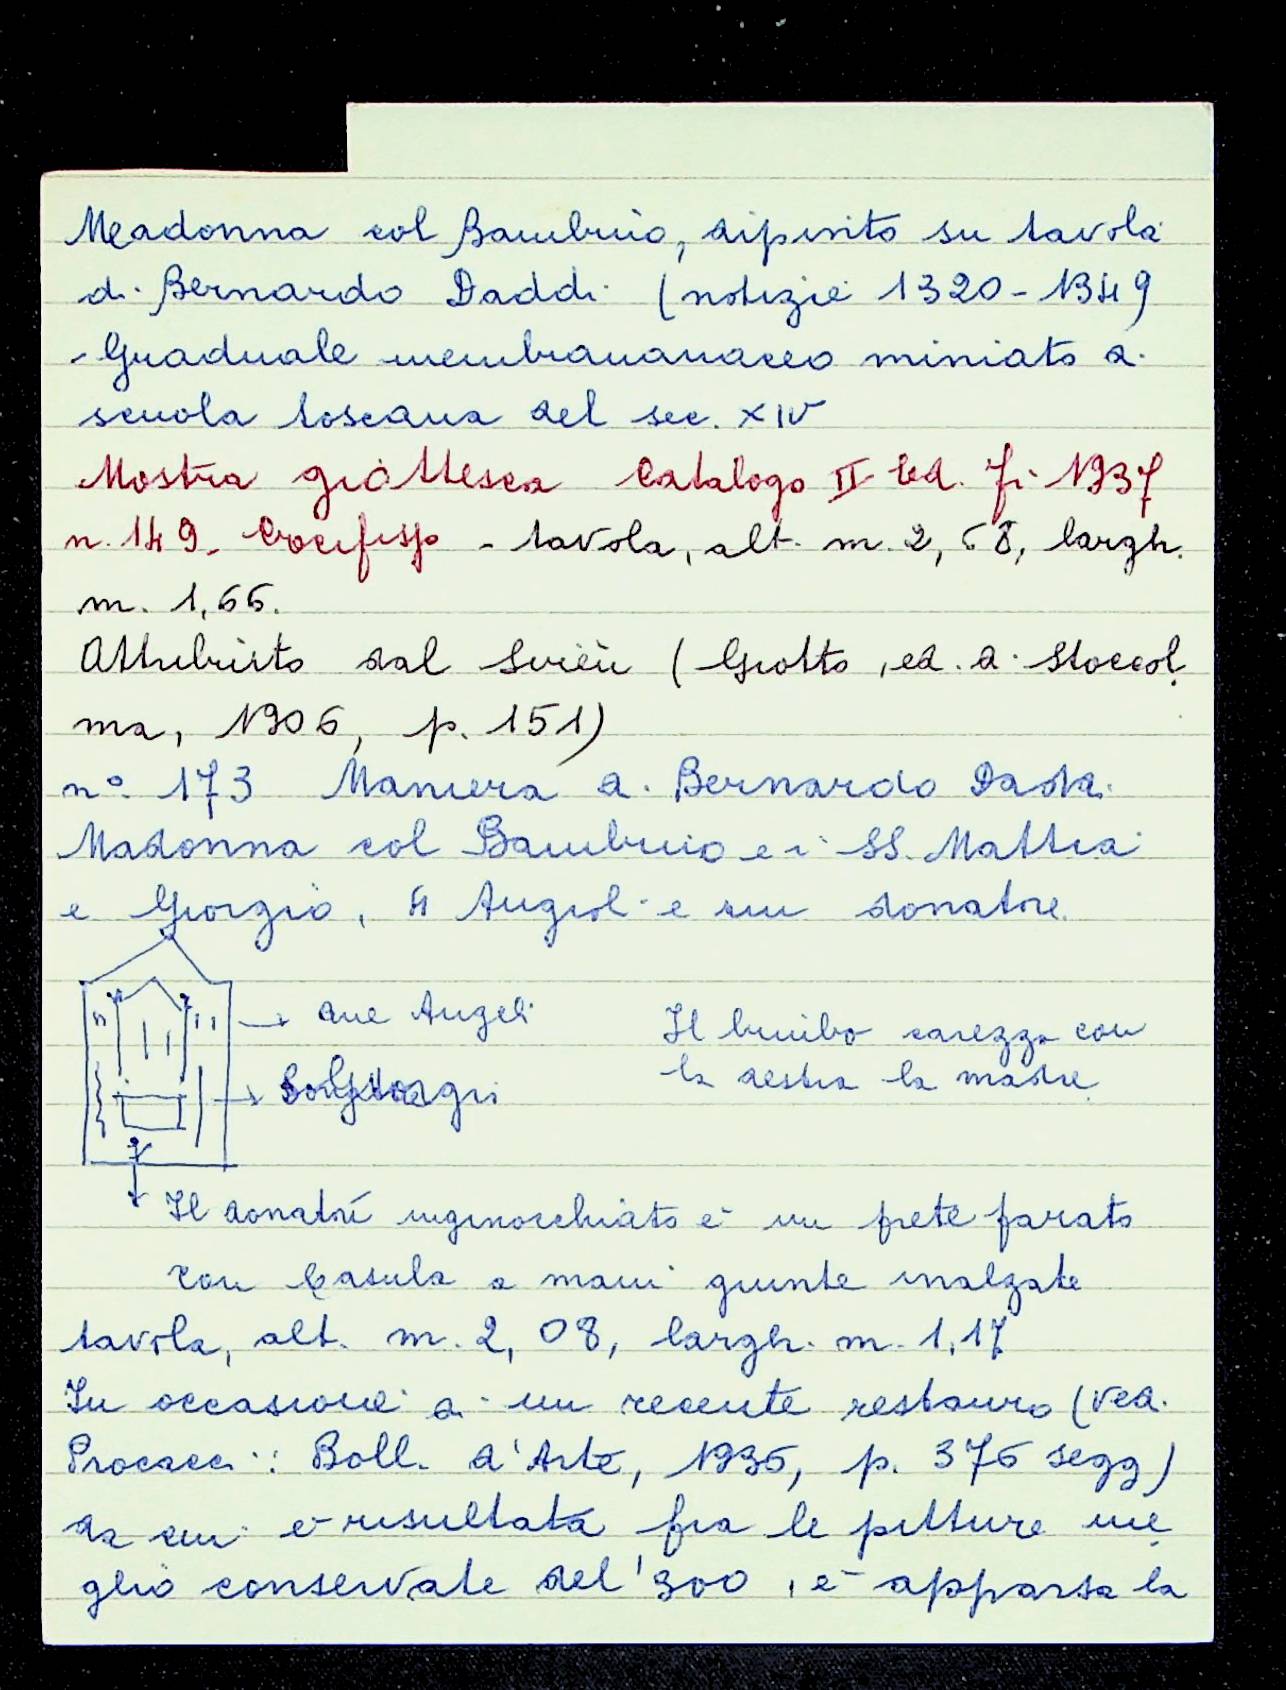 Madonna col Bambino, dipinto su tavola
di Bernardo Daddi (notizie 1320-1349
- Graduale membrananaceo miniato di
scuola toscana del sec. XIV
Mostra giottesca Catalogo II Ed. Fi 1937
n. 149. Crocifisso - tavola, alt. m. 2,68, largh.
m. 1,66.
Attribuito dal Sirén (Giotto, ed. di Stoccol
ma, 1906, p. 151)
n° 173 Maniera di Bernardo Daddi.
Madonna col Bambino e i SS. Mattia
e Giorgio, 4 Angioli e un donatore.
→ due Angeli
Il bimbo carezza con
la destra la madre
→
Il donatore inginocchiato è un prete parato
con casula a mani giunte inalzate
tavola, alt. m. 2,08, largh. m. 1,17
In occasione di un recente restauro (ved.
Procacci: Boll. d'Arte, 1936, p. 376 segg)
da cui è risultata fra le pitture me
glio conservate del '300, è apparsa la